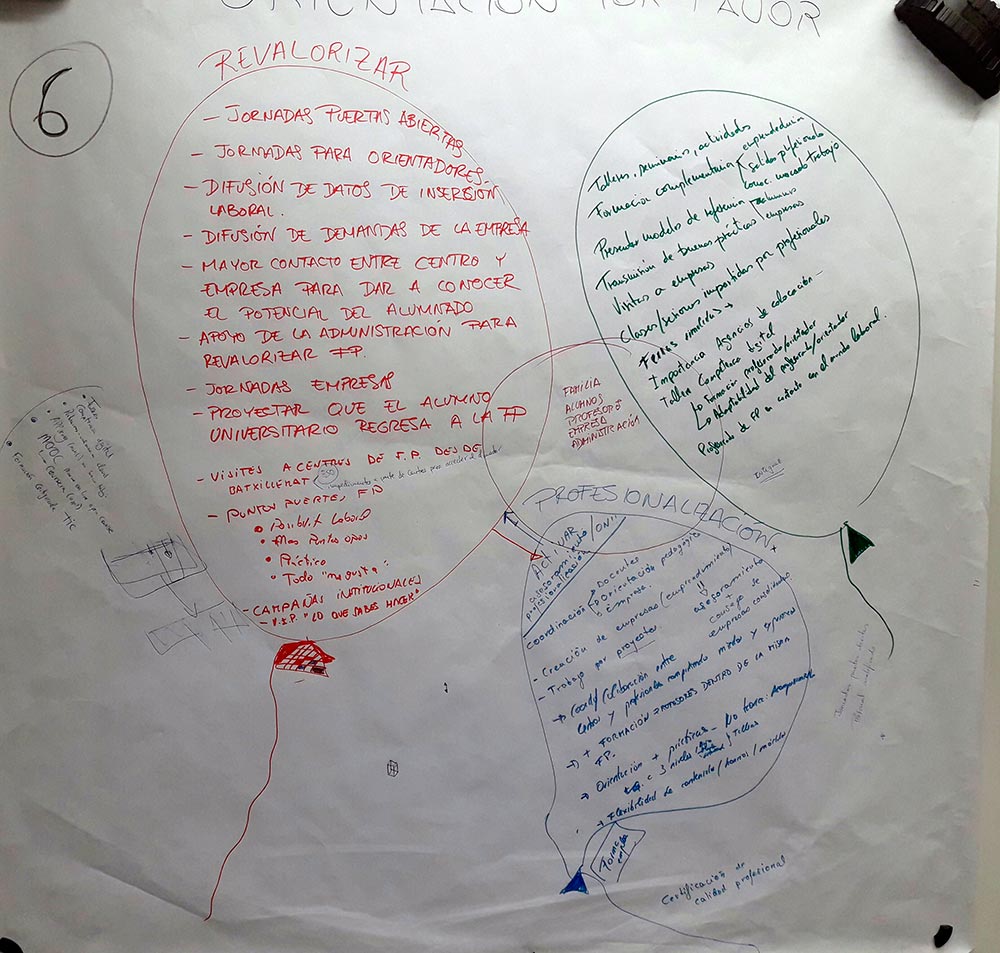 ORIENTACIÓN POR FAVOR
6
REVALORIZAR
- JORNADAS PUERTAS ABIERTAS
- JORNADAS PARA ORIENTADORES
- DIFUSIÓN DE DATOS DE INSERSIÓN
LABORAL.
- DIFUSIÓN DE DEMANDAS DE LA EMPRESA
- MAYOR CONTACTO ENTRE CENTRO Y
EMPRESA PARA DAR A CONOCER
EL POTENCIAL DEL ALUMNADO
- APOYO DE LA ADMINISTRACIÓN PARA
REVALORIZAR FP.
- JORNADAS EMPRESAS
- PROYECTAR QUE EL ALUMNO
UNIVERSITARIO REGRESA A LA FP
- VISITES A CENTRES DE F.P. DES DE
BATXILLERAT
- PUNTOS FUERTES FP
• Posibilit Laboral
• Mas Puntos opos
• Práctico
• Todo "me gusta"
- CAMPAÑAS INSTITUCIONALES
"LO QUE SABES HACER"
Talleres, seminarios, actividades
Formación complementaria
emprendeduria
salidas profesionales
conoc. mercado trabajo
Presentar modelos de referencia
Transmisión de buenas prácticas
alumnos
empresas
Visitas a empresas
Clases/sesiones impartidas por profesionales
Ferias
Importancia Agencias de colocación
Taller Competencia digital
Formación profesorado/orientador
Adaptabilidad del profesorado/orientador
Profesorado de FP en contacto con el mundo laboral.
FAMILIA
ALUMNOS
PROFESORES
EMPRESA
ADMINISTRACIÓN
PROFESIONALIZACIÓN
ACTIVAR
asesoramiento/
profesionalización
coordinación
Docentes
Orientación pedagógica
Empresa
- Creación de empresas (emprendimiento)
asesoramiento
consejo de
empresas consolidadas
- Trabajo por proyectos
→ Coord/Colaboración entre
centros y profesionales compartiendo miedos y experiencia
→ + FORMACIÓN PROFESORES DENTRO DE LA MISMA
FP.
→ Orientación + prácticas
3 niveles
Talleres
→ Flexibilidad de contenido/horarios/módulos
Certificación de
calidad profesional
MOOC
TIC